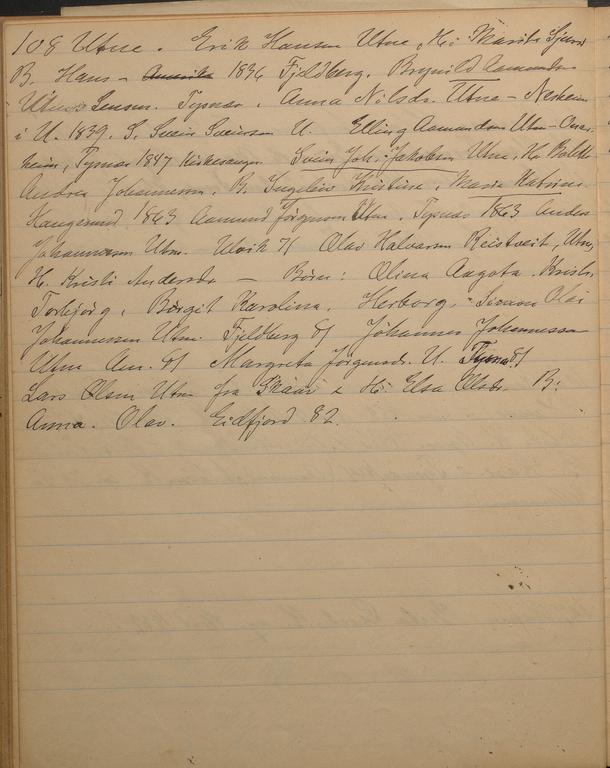 108 Utne. Erik Hansen Utne, H: Marite Sjurd
B. Hans – Amerika 1836 Fjeldberg. Brynild Aamunds
Utnes Tysvær. Anna Nilsdr. Utne – Nesheim
i U. 1839. S. Svein Sveinson U. Elling Aamundsen Utne –
heim, Tysvær 1847 Kirkesanger. Svein Joh. Jakobsen Utne, H.
Andrea Johannesen, B. Ingeleiv Kristine, Marie Katrine.
Haugesund 1863 Aamund Jörgensen Utne. Tysvær 1863 Anders
Johannesen Utne. Ulvik 71 Olav Halvarsen Reistveit, Utne,
H. Kristi Andersdr – Börn: Olina Aagota,
Torbjörg, Börgit Karolina. Herborg. – Simon Olai
Johannessen Utne. Fjeldberg 81 Johannes Johannessen
Utne Am. 81 Margreta Jörgensdr. U. Tysvær 81
Lars Olsen Utne fra Skaar & H: Elsa Olsdr. B:
Anna. Olav. Eidfjord 82.